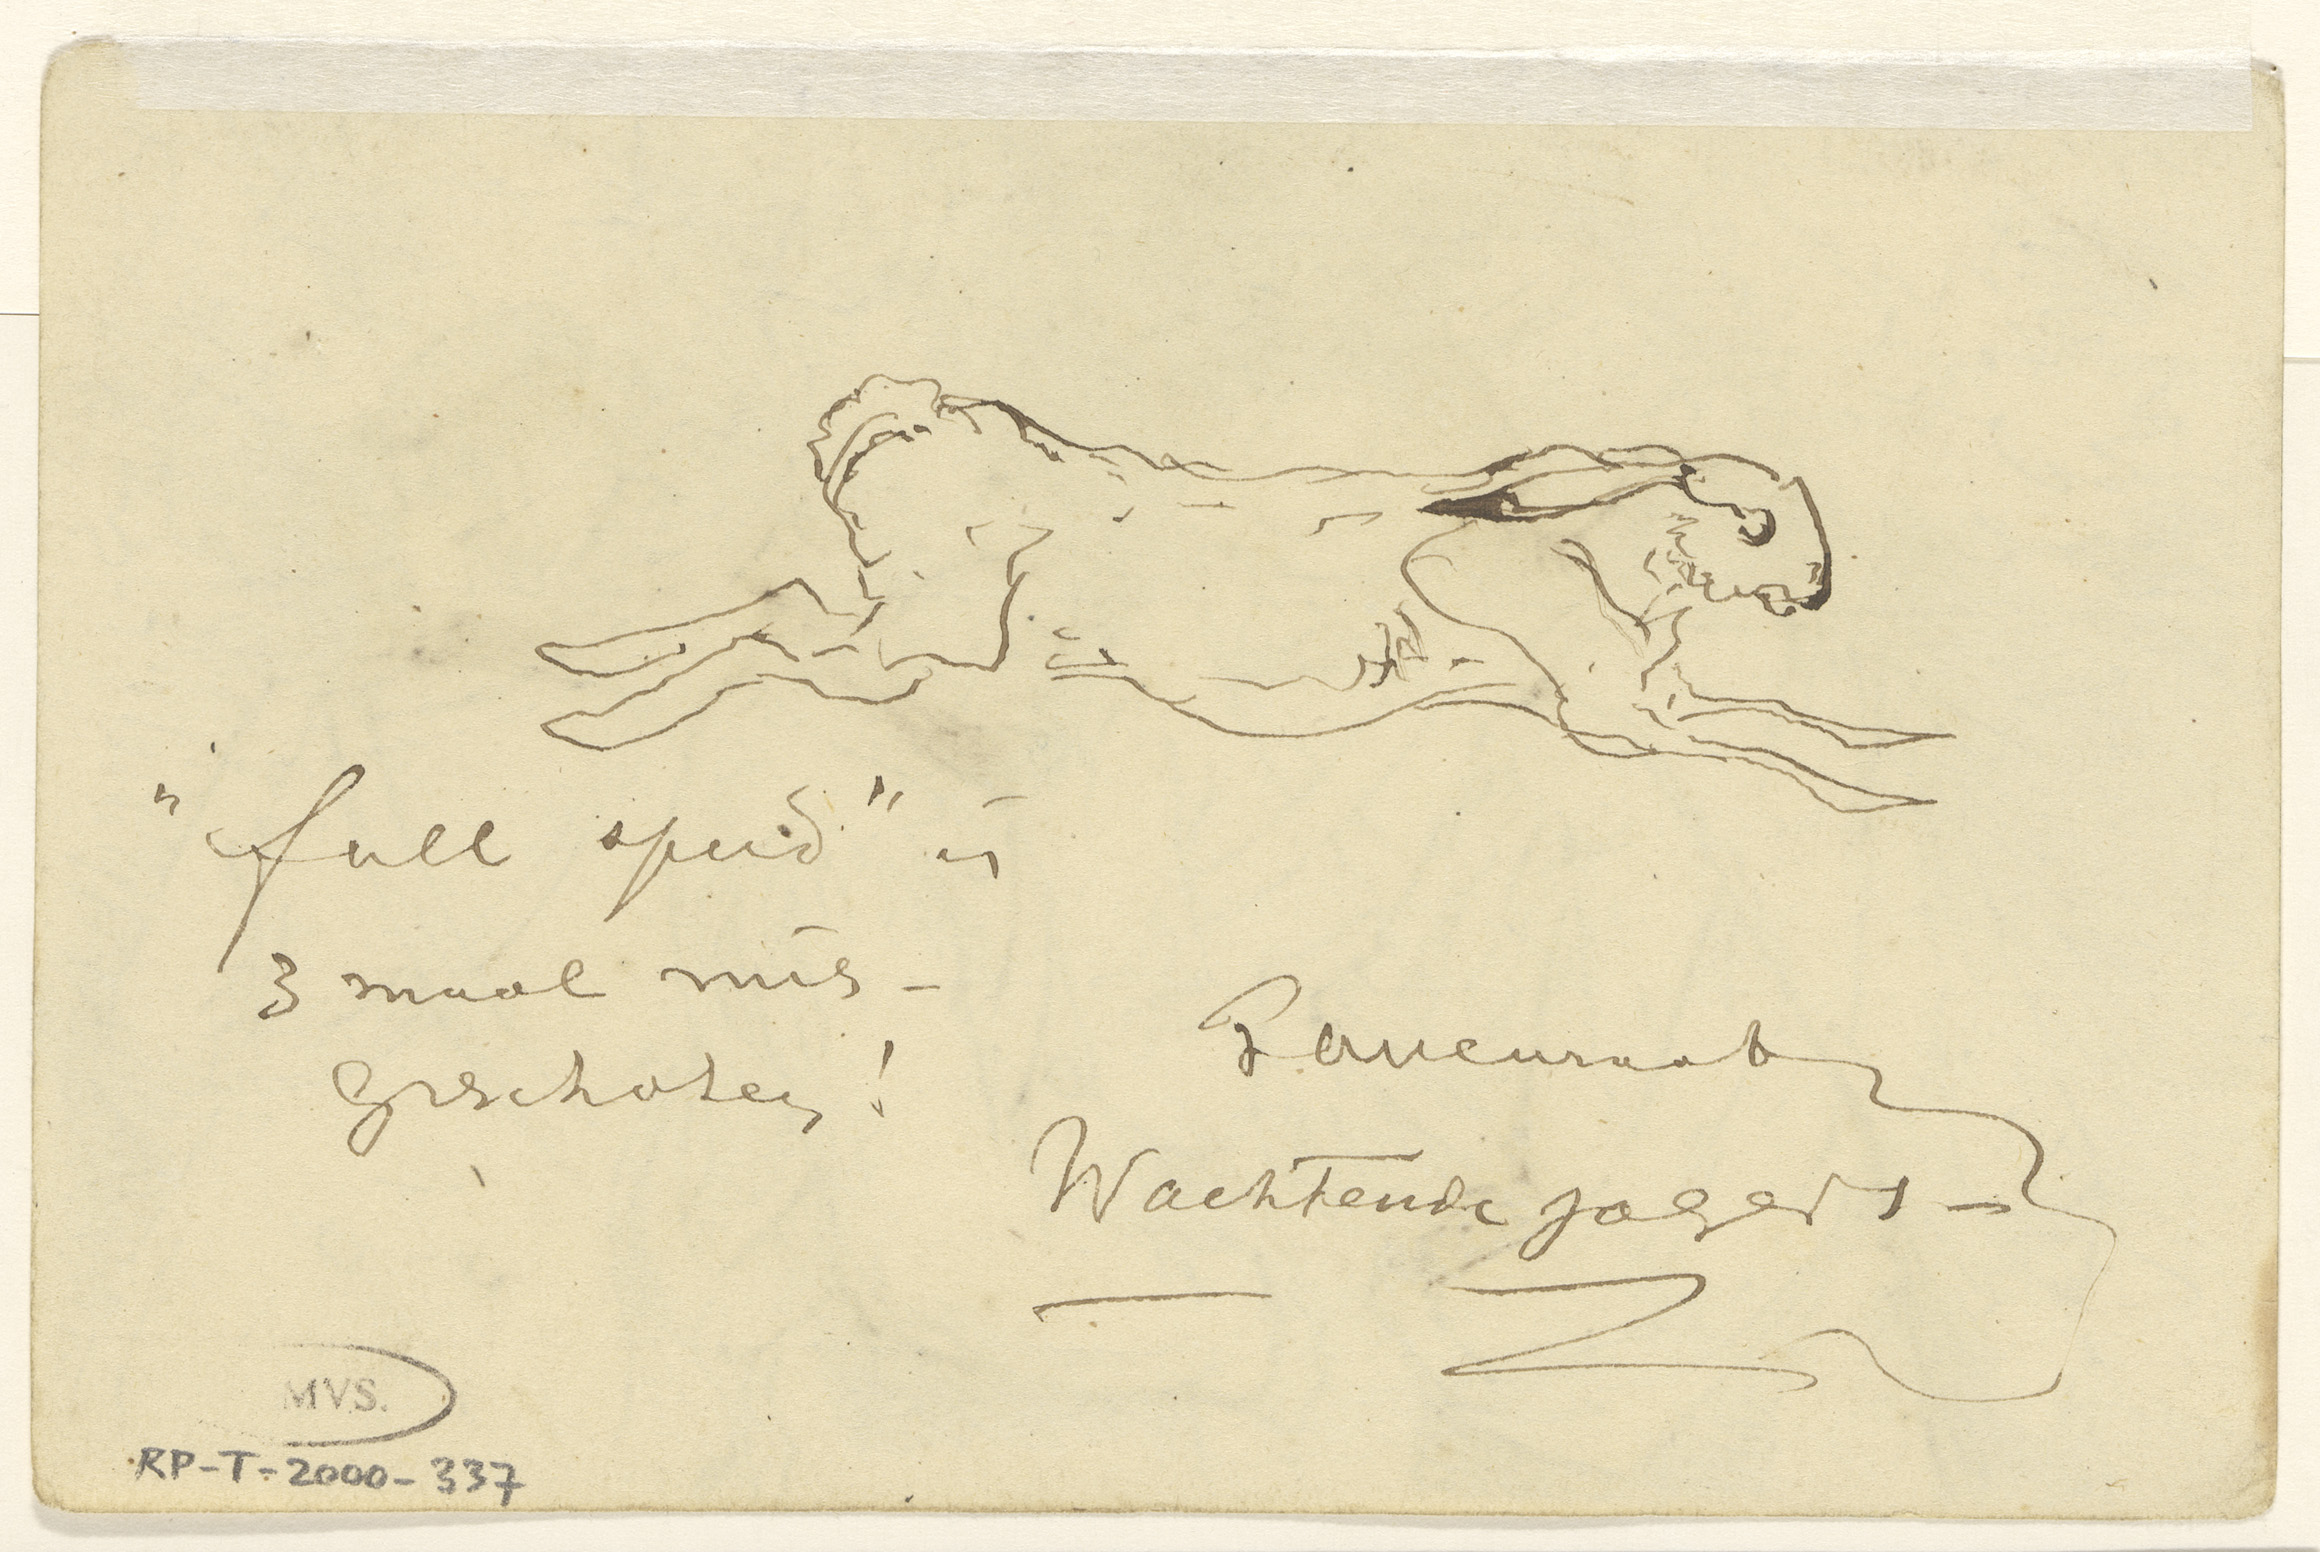 "full speed" en
3 maal mis-
geschoten!
Wachtende jagers -
MVS.
RP-T-2000-337